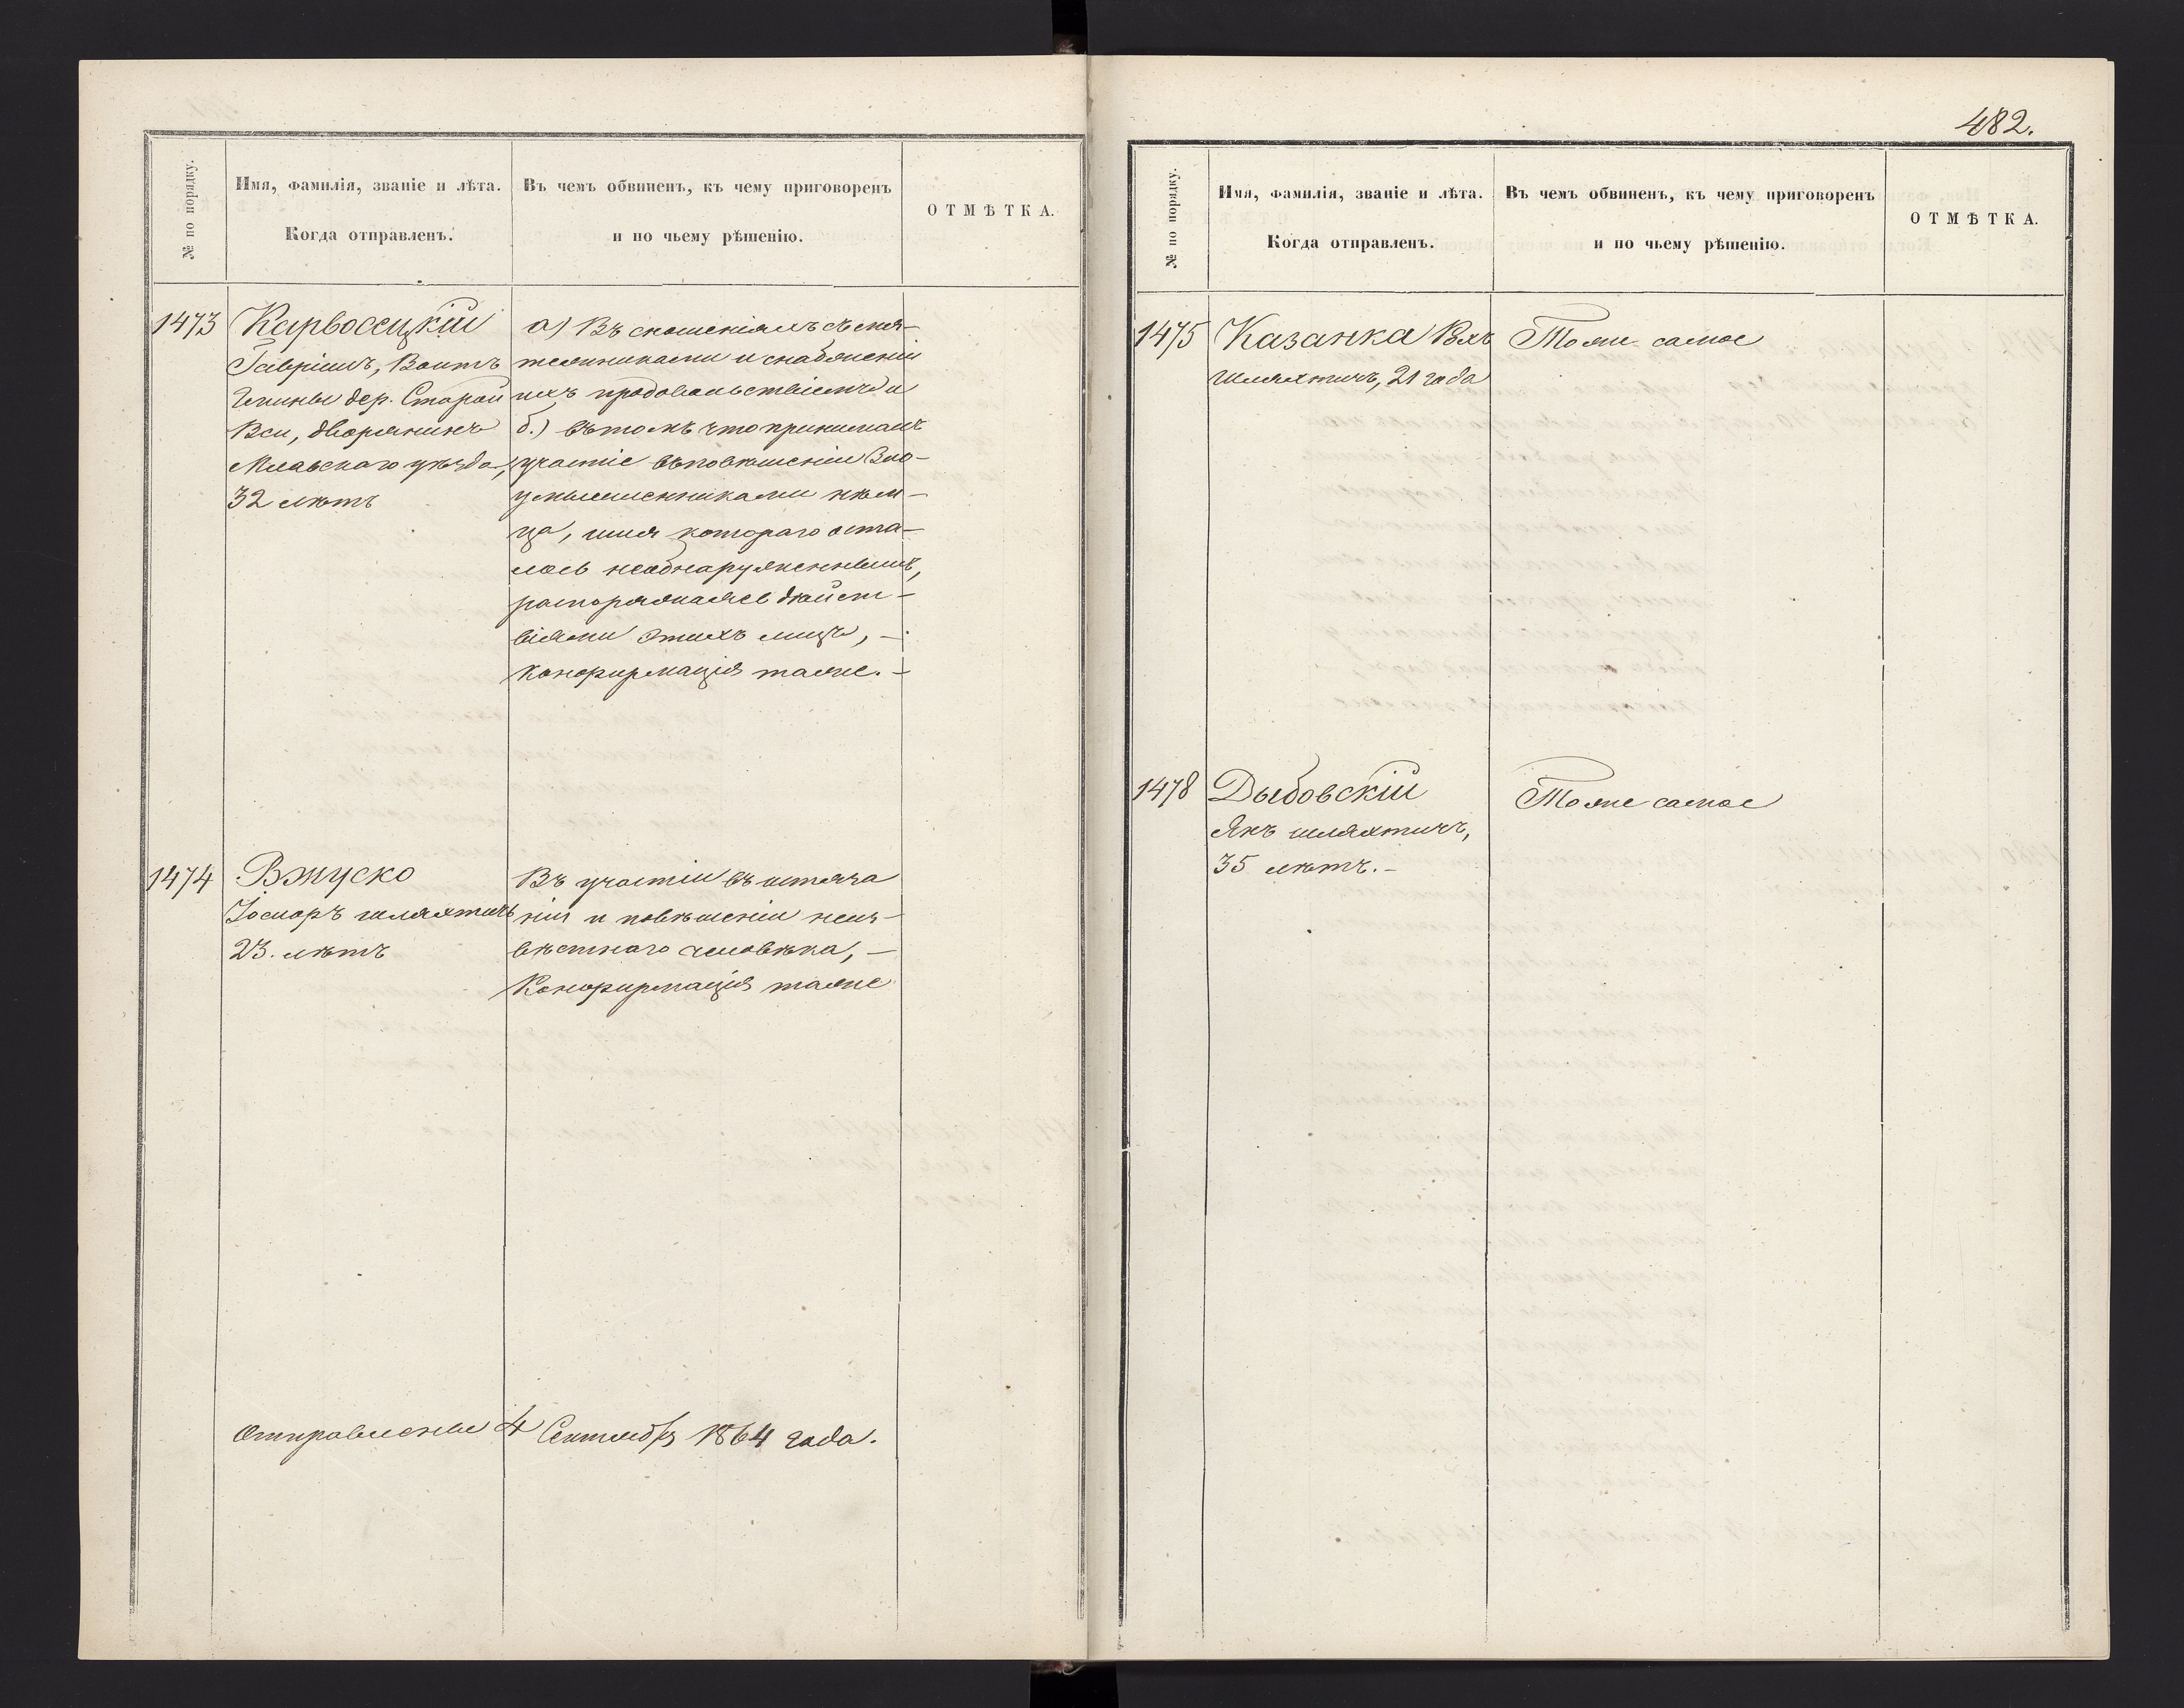 № по порядку.
Имя, фамилія, званіе и лѣта.
Когда отправленъ.
Въ чемъ обвиненъ, къ чему приговоренъ
и по чьему рѣшенію.
ОТМѢТКА.
1473
Карвосецкій
Гавріилъ, Воитъ
Гмины дер. Старой
Вси, дворянинъ
Млавскаго уѣзда,
32 лѣтъ
а) Въ сношеніяхъ съ мя-
тежниками и снабженіи
ихъ продовольствіемъ и
б.) въ томъ что принималъ
участіе въ повѣшеніи Зло-
умышленниками нѣм-
ца, имя котораго оста-
лось необнаруженнымъ,
распоряжаясь дѣйст-
віями этихъ лицъ, -
Конфирмація таже. -
1474
Вжуско
Іосифъ шляхтичъ
23. лѣтъ
Въ участіи въ истяза
ніи и повѣшеніи неиз-
вѣстнаго человѣка, -
Конфирмація таже
Отправлены 4 Сентября 1864 года.
482.
№ по порядку.
Имя, фамилія, званіе и лѣта.
Когда отправленъ.
Въ чемъ обвиненъ, къ чему приговоренъ
и по чьему рѣшенію.
ОТМѢТКА.
1475
Казанка
Шляхтичъ, 21 года
Тоже самое
1478
Дыбовскій
Янъ шляхтичъ,
35 лѣтъ. -
Тоже самое